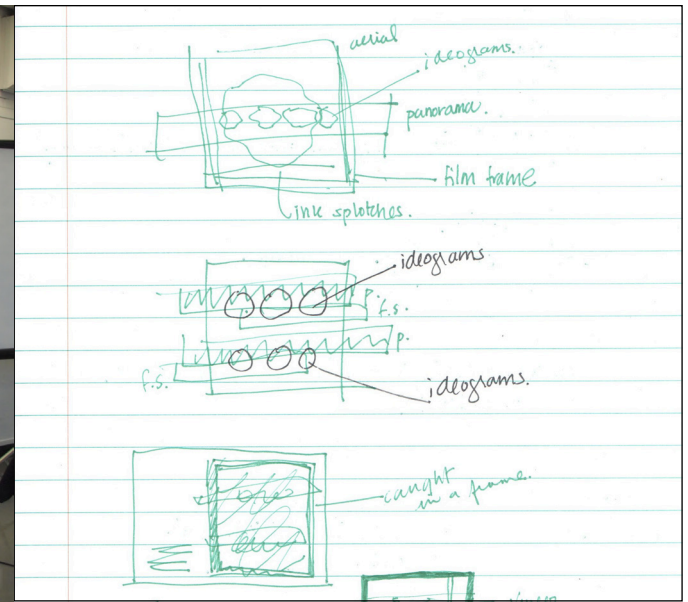 aerial
ideograms.
panorama.
film frame
ink splotches.
ideograms
p.
f.s.
p.
f.s.
ideograms.
caught
in a frame.